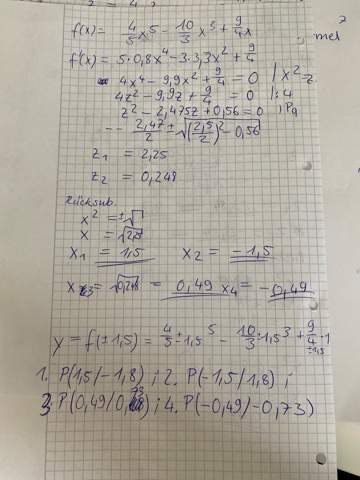 f(x) = 4/5 x^5 - 10/3 x^3 + 9/4 x
mel 2
f'(x) = 5·0,8x^4 - 3·3,3x^2 + 9/4
4x^4 - 9,9x^2 + 9/4 = 0 | x^2=z
4z^2 - 9,9z + 9/4 = 0 |:4
z^2 - 2,475z + 0,56 = 0 | Pq
-- 2,47/2 ± √((2,5/2)^2 - 0,56
z1 = 2,25
z2 = 0,249
Rücksub.
x^2 = ±√
x = √2,25
x1 = 1,5 x2 = -1,5
x3 = √0,249 = 0,49 x4 = -0,49
y = f(±1,5) = 4/5 · ±1,5^5 - 10/3 · 1,5^3 + 9/4 · ±1,5
1. P(1,5/-1,8) ; 2. P(-1,5/1,8) ;
3. P(0,49/0,73) ; 4. P(-0,49/-0,73)